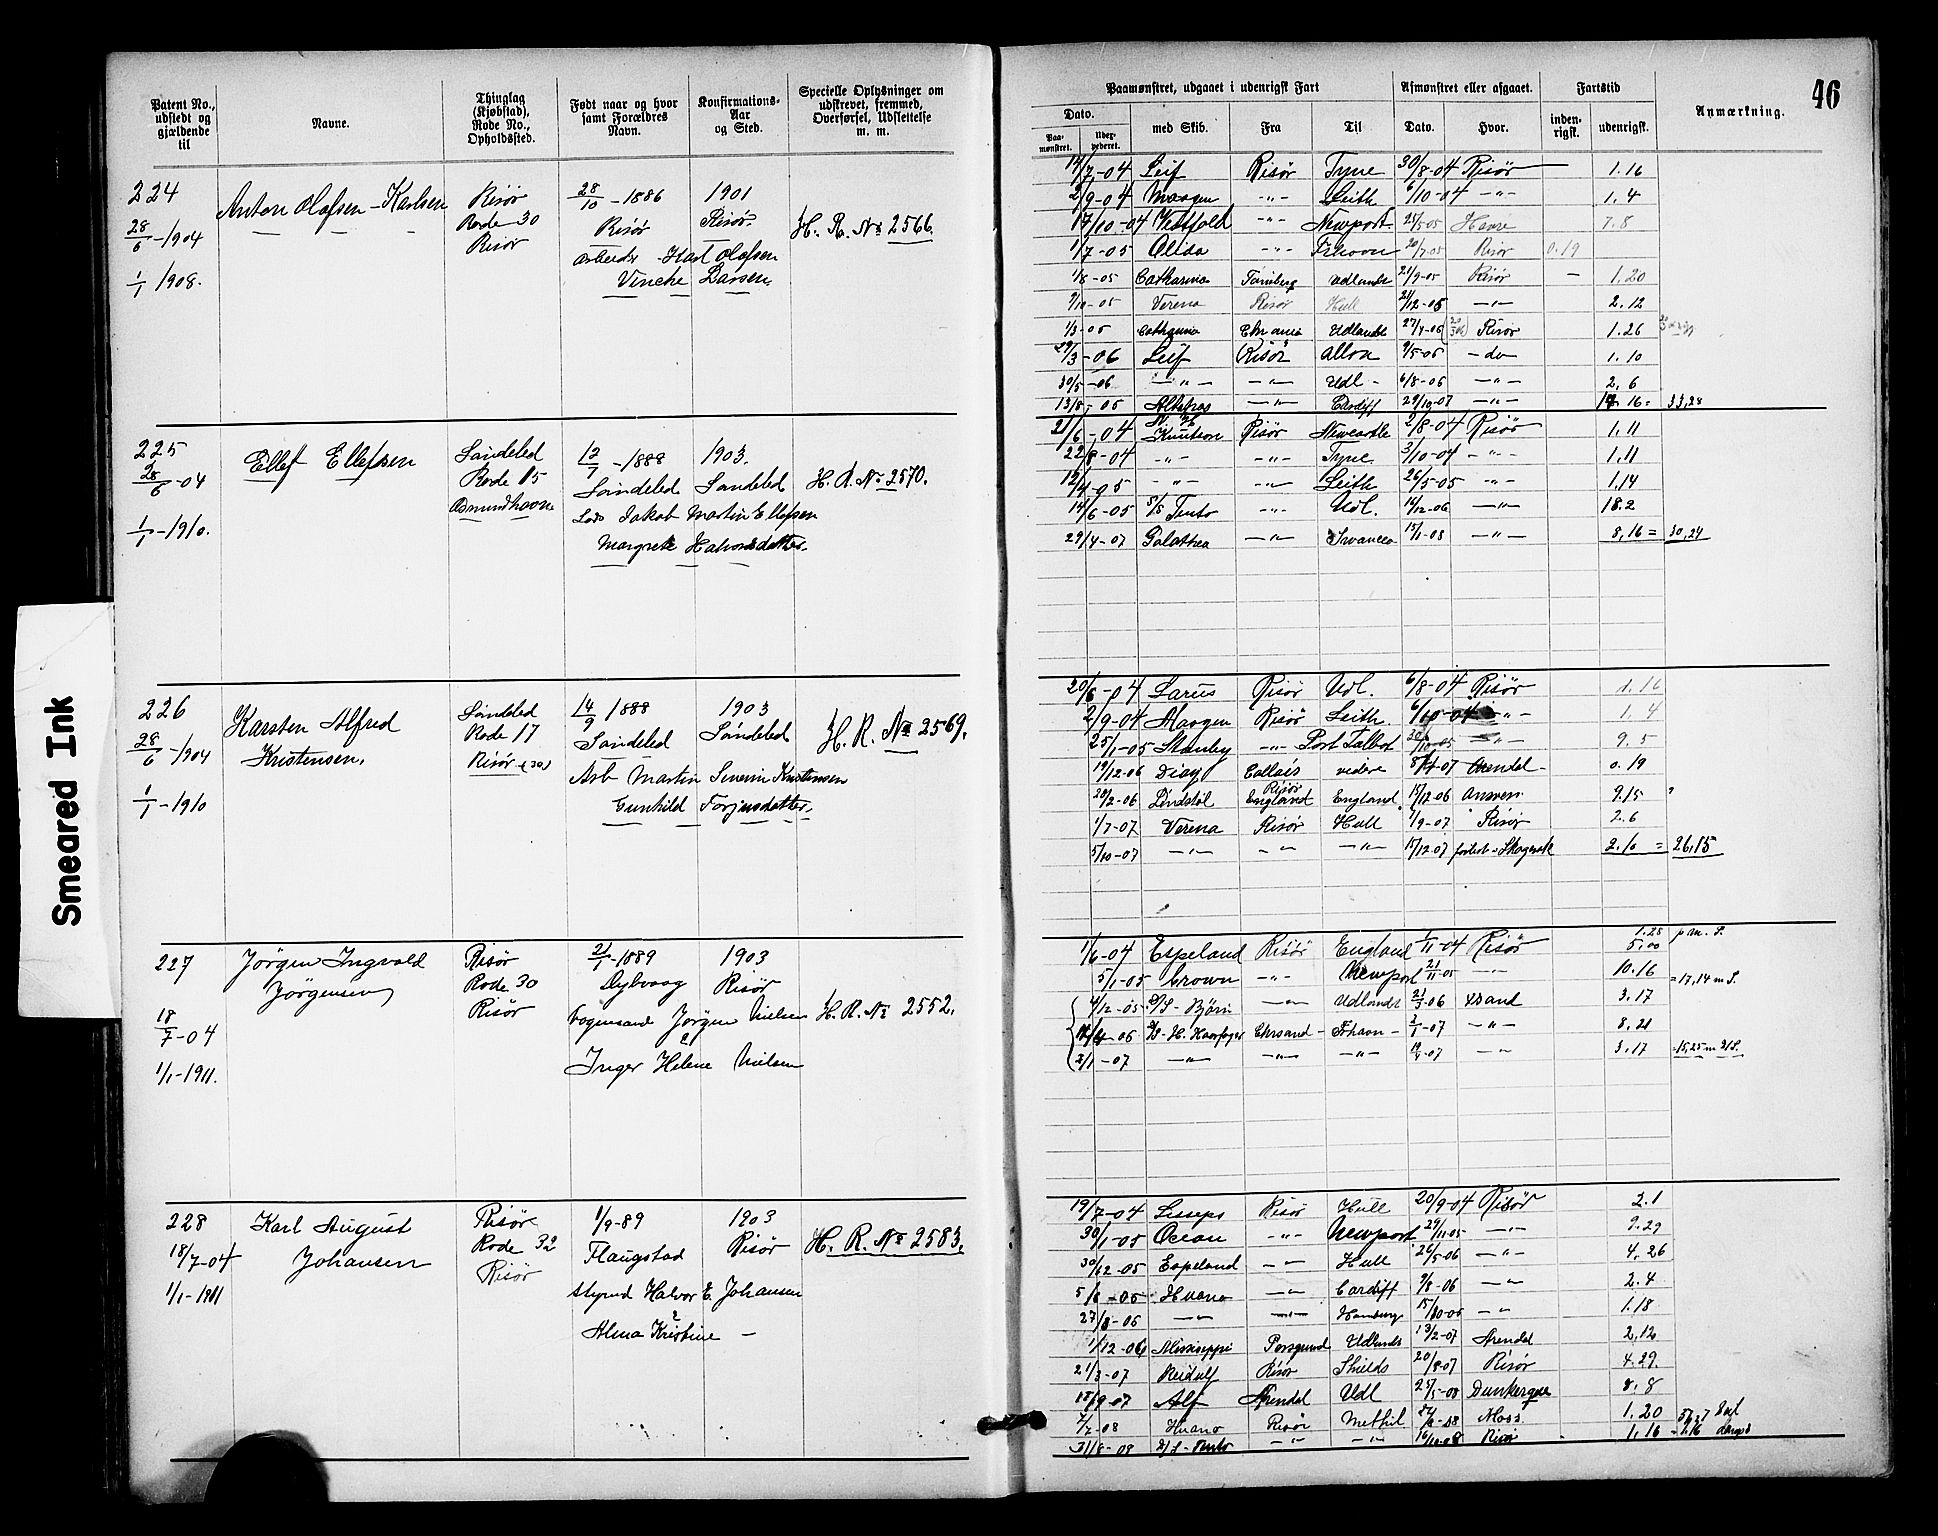 46
Patent No., udstedt og gjældende til
Navne.
Thinglag (Kjøbstad), Rode No., Opholdssted.
Født naar og hvor samt Forældres Navn.
Konfirmations-Aar og Sted.
Specielle Oplysninger om udskrevet, fremmed, Overførsel, Udslettelse m. m.
Paamønstret, udgaaet i udenrigsk Fart
Afmønstret eller afgaaet.
Fartstid
Anmærkning.
Dato.
Paa-mønstret.
med Skib.
Fra
Til
Dato.
Hvor.
inden-rigsk.
udenrigsk.
224
28/6-1904
1/1 1908.
Anton Olafsen-Karlsen
Risør
Rode 30
Risør
28/10-1886
Risør
arbeider Karl Olafsen
Vincke Larsen
1901
Risør
H. R. No 2566.
14/7-04 Leif Risør Tyne 30/8-04 Risør 1.16
2/9-04 Maagen -"- Leith 6/10-04 -"- 1.4
17/10-04 Vestfold -"- Newport 25/5-05 Havre 7.8
1/7-05 Olisa -"- 20/7-05 Risør 0.19
1/8-05 Catharina Udlandet 21/9-05 Risør - 1.20
9/10-05 Verena Risør Hull 21/12-05 -"- 2.12
1/3-06 Udlandet 27/4-06 Risør 1.26
29/3-06 Leif Risør Alloa 9/5-06 - do 1.10
30/5-06 -"- -"- Udl - 6/8-06 -"- 2.6
13/8-05 -"- Cardiff 29/10-07 -"- 16 = 33,28
225
28/6-04
1/1-1910.
Ellef Ellefsen
Søndeled
Rode 15
Osmundhavn
12/7-1888
Søndeled
Lods Jakob Martin Ellefsen
Margrete Halvorsdatter.
1903.
Søndeled
H. R. No 2570.
21/6-04 Knutson Risør Newcastle 2/8-04 Risør 1.11
22/8-04 -"- -"- Tyne 3/10-04 -"- 1.11
12/4-05 -"- -"- Leith 26/5-05 -"- 1.14
14/6-05 S/S Tento -"- Udl. 14/12-06 -"- 18.2
29/4-07 Galathea -"- 15/1-08 -"- 8,16 = 30,24
226
28/6-1904
1/1-1910
Karsten Alfred
Kristensen.
Søndeled
Rode 17
Risør (30)
14/9 1888
Søndeled
Arb Martin Severin Kristensen
Gunhild Torjusdatter.
1903
Søndeled
H. R. No 2569.
20/6-04 Larus Risør Udl. 6/8-04 Risør 1.16
2/9-04 Maagen Risør Leith. 6/10-04 -"- 1.4
25/1-05 Stanley -"- Port Talbot 30/10-05 -"- 9.5
19/12-06 Diaz Callais videre Arendal - 0.19
20/2-06 Lindstøl Risør England England 15/12-06 9.15
1/7-07 Verena Risør Hull 1/9-07 Risør 2.6
5/10-07 -"- -"- -"- 15/12-07 forlist i Skagerak 2.10 = 26,15
227
18/7-04
1/1-1911.
Jörgen Ingvald
Jörgensen
Risør
Rode 30
Risør
21/1-1889
Dybvaag
Jørgen Nielsen
Inger Helene Nielsen
1903
Risør
H. R. No 2552.
1/6-04 Espeland Risør England 1/11-04 Risør 1.25 5.00
5/1-05 Crown -"- Newport 21/11-05 -"- 10.16 = 17,14 m S.
4/12-05 D/S - Bjørn -"- Udlandet 21/3-06 3.17
-"- 8.21
2/1-07 -"- -"- -"- -"- 3.17
228
18/7-04
1/1-1911
Karl August
Johansen
Risør
Rode 32
Risør
1/9-89
Flaugstad
styrmd Halvor E. Johansen
Alma Kristine -
1903
Risør
H. R. No 2583.
19/7-04 Lesseps Risør Hull 20/9-04 Risør 2.1
30/1-05 Ocean -"- Newport 29/11-05 -"- 9.29
30/12-05 Espeland -"- Hull 26/5-06 -"- 4.26
5/6-06 Huano -"- Cardiff 9/8-06 -"- 2.4
27/8-06 -"- -"- Hamburg 15/10-06 -"- 1.18
1/12-06 Mississippi Porsgrund Udlandet 13/2-07 Arendal 2,12
21/3-07 Reidulf Risør Shields 20/8-07 Risør 4.29.
18/9-07 Alf Arendal Udl 25/5-08 Dunkerque 8.8
7/7-08 Huano Risør Methil Moss 1.20
31/8-08 D/S - Tento -"- -"- 16/10-08 Risør 1,16
Smeared Ink